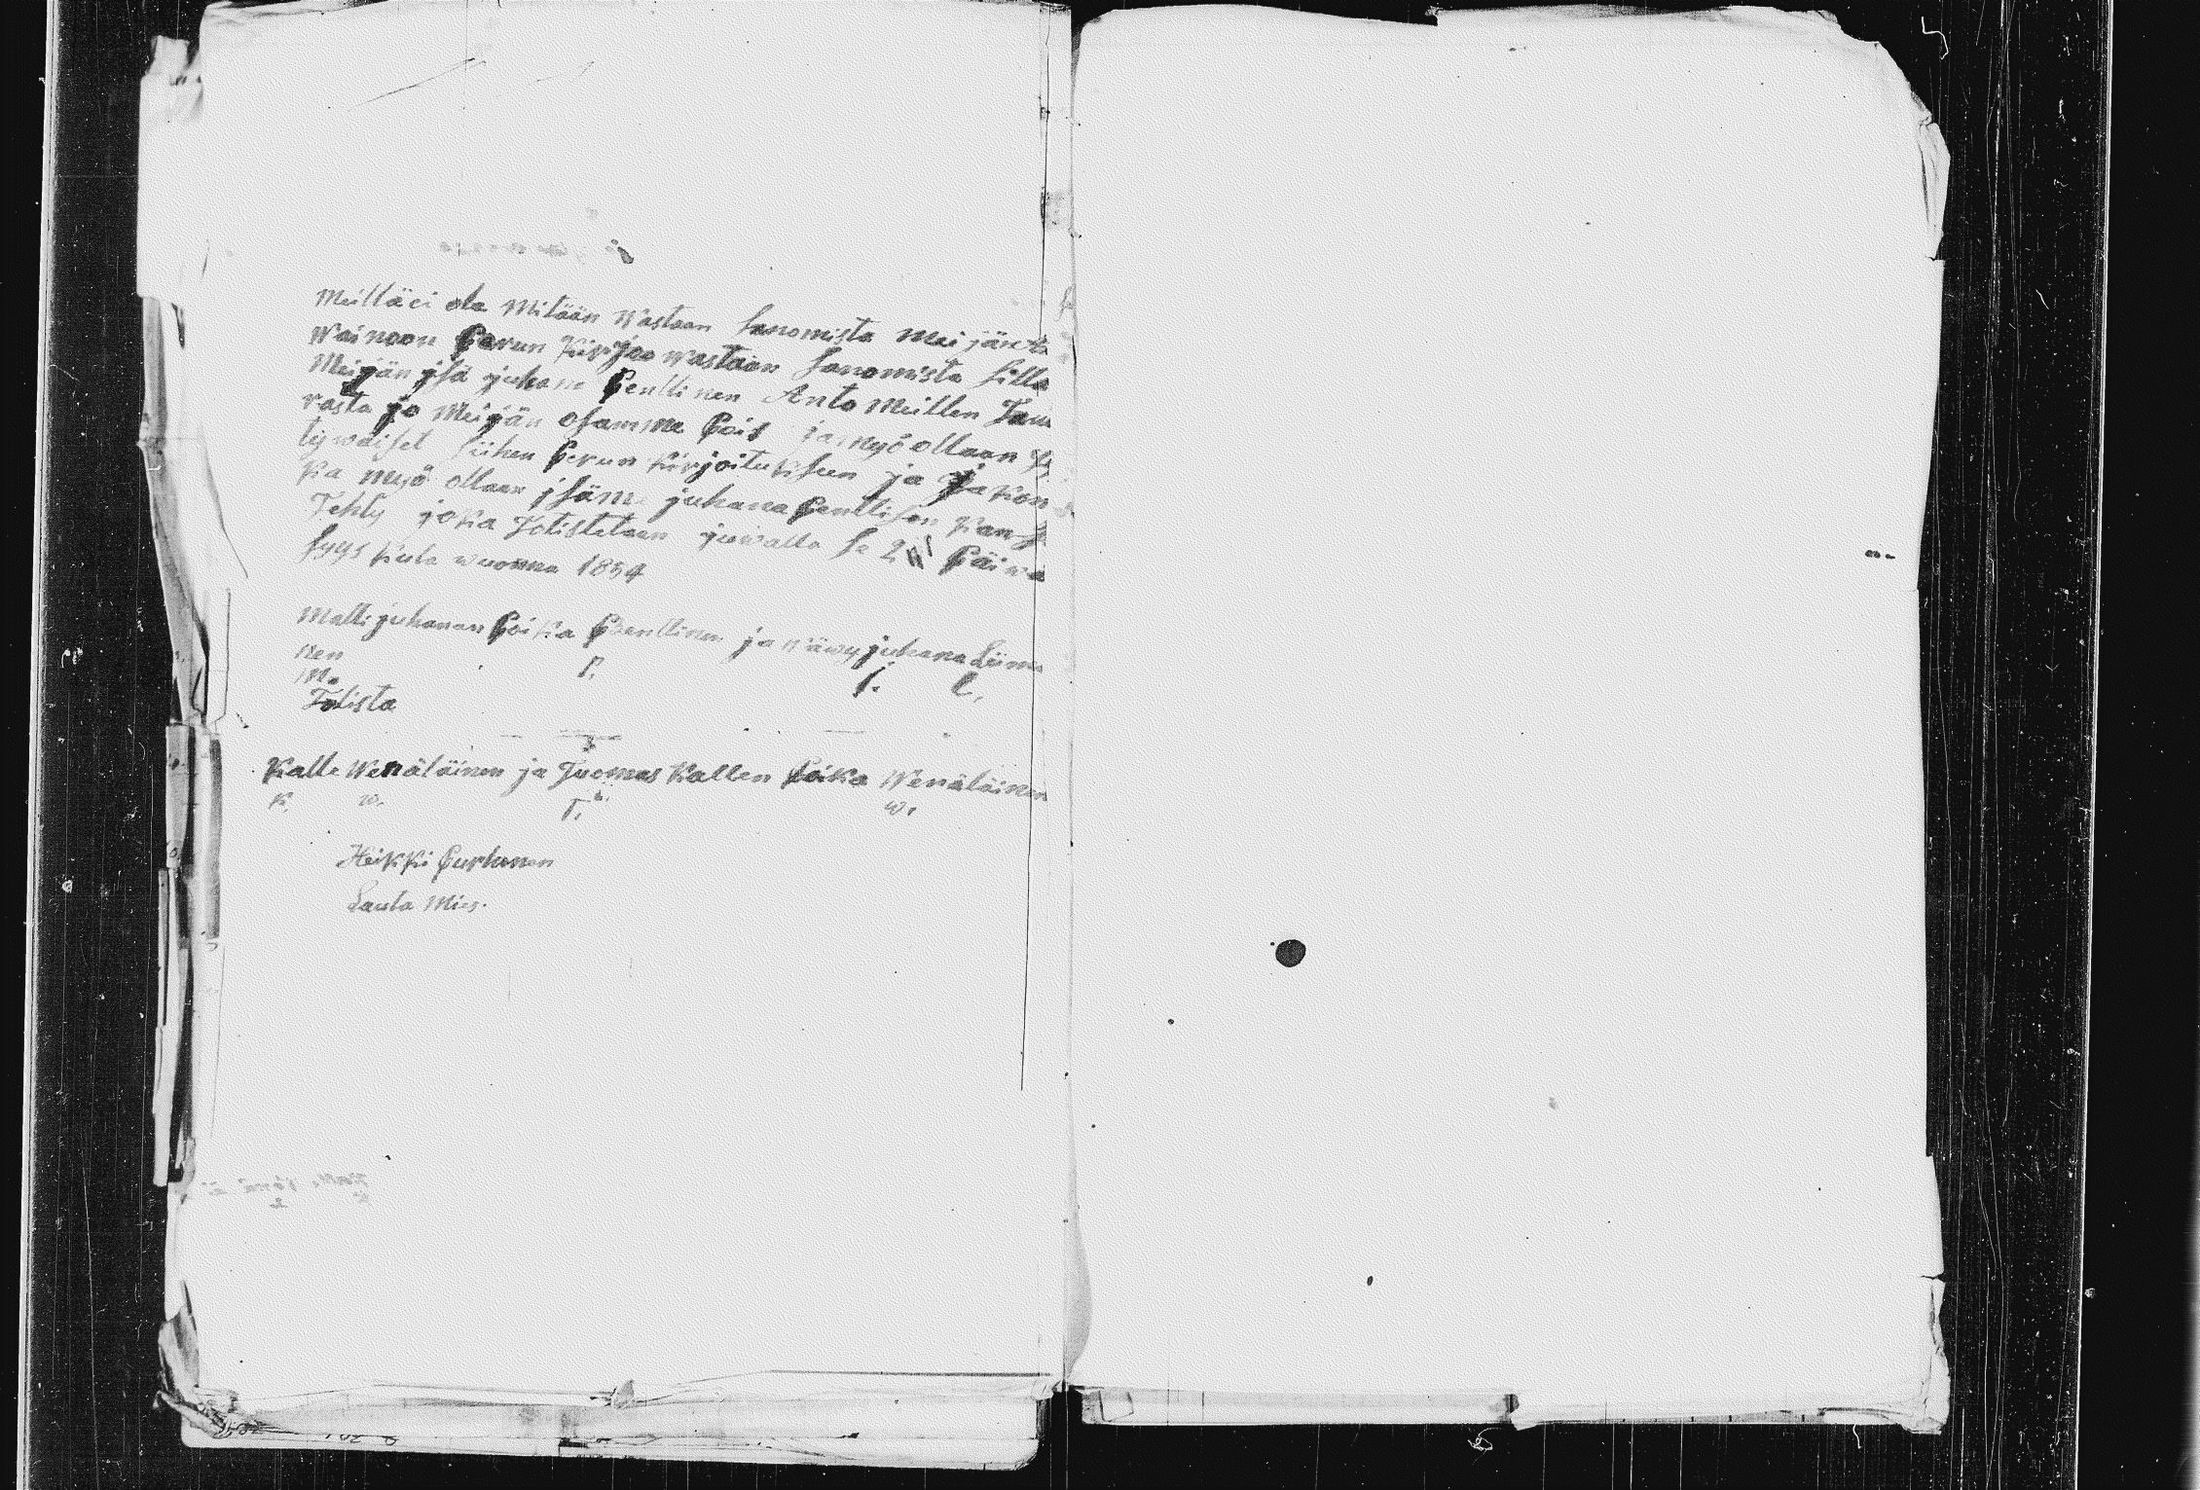 Meiltäei ole Mitään Wastaan Sanomista Meijän
Wainoon Perun Kirjaa wastaan Sanomista Sillä
Meijän jsä juhana Penttinen Anto Meillen Tava
rasta jo Meijän osamme Pois ja myö ollaan
tywäiset Siihen Perun Kirjoituksen ja
Ka myö ollaan jsäme juhana Penttisen Kan
Tehty joka Totistetaan juwalla Se 2 Päiwä
Syys Kuta wuonna 1854
Matti juhanan Poika Penttinen ja Wäwy juhana Liima
nen
M. P. j. L.
Totista
Kalle Wenäläinen ja Tuomas Kallen Poika Wenäläinen
K. W. T. K. W.
Heikki Purhonen
Lauta Mies.